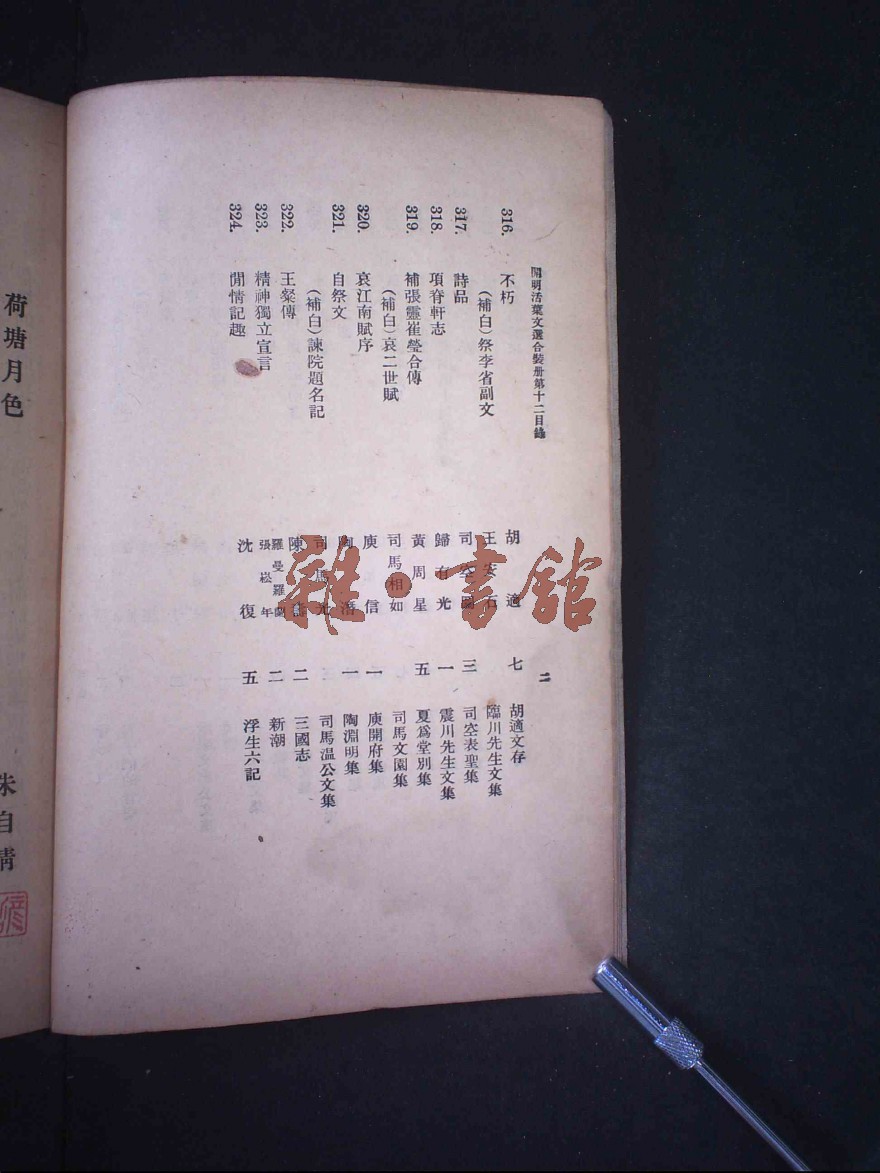 開明活葉文選合裝册第十二目錄 二
316. 不朽 胡適 七 胡適文存
（補白）祭李省副文 王安石 臨川先生文集
317. 詩品 司空圖 三 司空表聖集
318. 項脊軒志 歸有光 一 震川先生文集
319. 補張靈崔瑩合傳 黃周星 五 夏爲堂別集
（補白）哀二世賦 司馬相如 司馬文園集
320. 哀江南賦序 庾信 一 庾開府集
321. 自祭文 陶潛 一 陶淵明集
（補白）諫院題名記 司馬光 司馬温公文集
322. 王粲傳 陳壽 二 三國志
323. 精神獨立宣言 羅曼羅蘭 張崧年 二 新潮
324. 閒情記趣 沈復 五 浮生六記
荷塘月色 朱自清
雜·書館